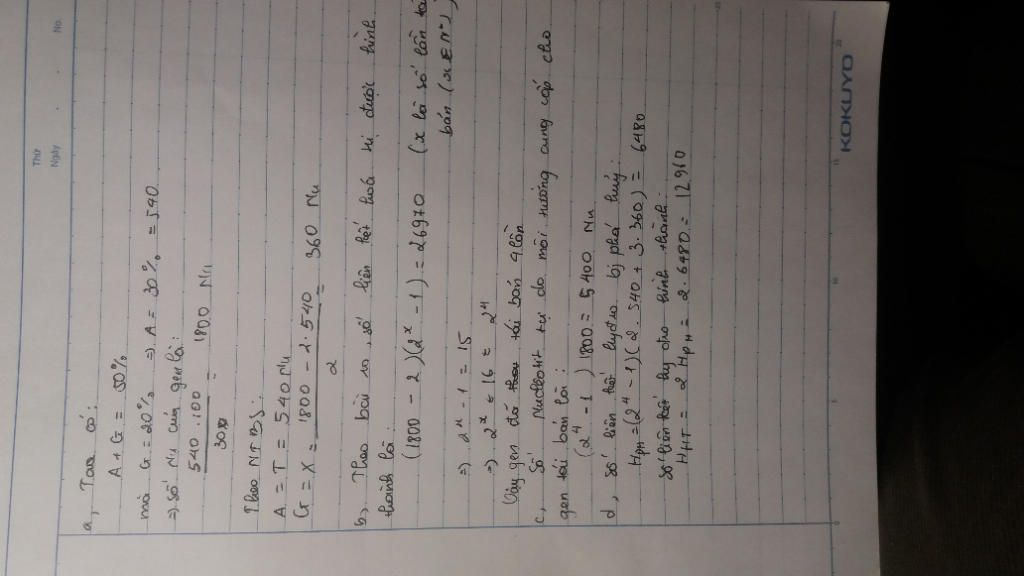 Thứ
Ngày
No.
a, Ta có:
A + G = 50%
mà G = 20% => A = 30% = 540
=> số Nu của gen là:
540.100 / 30 = 1800 Nu
Theo NTBS:
A = T = 540 Nu
G = X = 1800 - 2.540 / 2 = 360 Nu
b, Theo bài ra, số liên kết hoá trị được hình
thành là:
(1800 - 2)(2^x - 1) = 26970 (x là số lần tái
bản (x∈N*)
=> 2^x - 1 = 15
=> 2^x = 16 = 2^4
Vậy gen đã tái bản 4 lần
c, Số Nucleotit tự do môi trường cung cấp cho
gen tái bản là:
(2^4 - 1) 1800 = 5400 Nu
d, số liên kết hydro bị phá huỷ:
H_PH = (2^4 - 1)(2.540 + 3.360) = 6480
số liên kết hydro hình thành:
H_HT = 2 H_PH = 2.6480 = 12960
KOKUYO